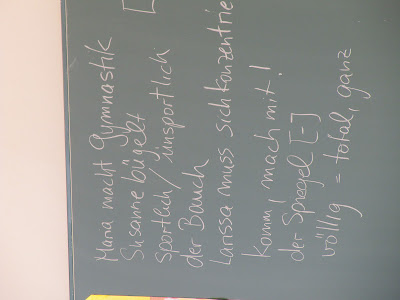 Mara macht Gymnastik [
Susanne bügelt
sportlich / unsportlich
der Bauch
Larissa muss sich konzentrie
Komm, mach mit!
der Spiegel [-]
völlig = total, ganz